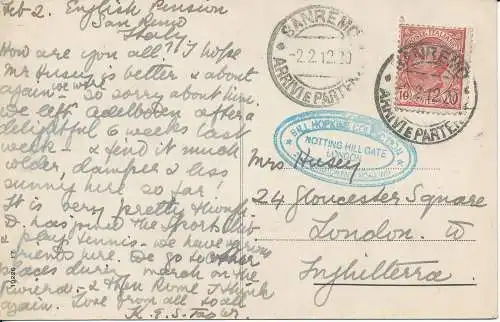 Feb 2. English Pension
San Remo
Italy
How are you all? I hope
Mr Husey is better & about
again we were
so sorry about him.
we left Adelboden after a
delightful 6 weeks last
week - & find it much
colder, damper & less
sunny here so far!
It is very pretty though
D. has joined the Sport Club
& plays tennis - we have
friends here. We go to other
places during march on the
Riviera & then Rome I think
again. Love from all to all
K. E. S.
SANREMO
2.2.12.20
ARRIVI E PARTENZE
POSTE ITALIANE
10
SANREMO
2.12.20
ARRIVI E PARTENZE
NOTTING HILL GATE
LONDON
Mrs Husey
24 Gloucester Square
London W
Inghilterra